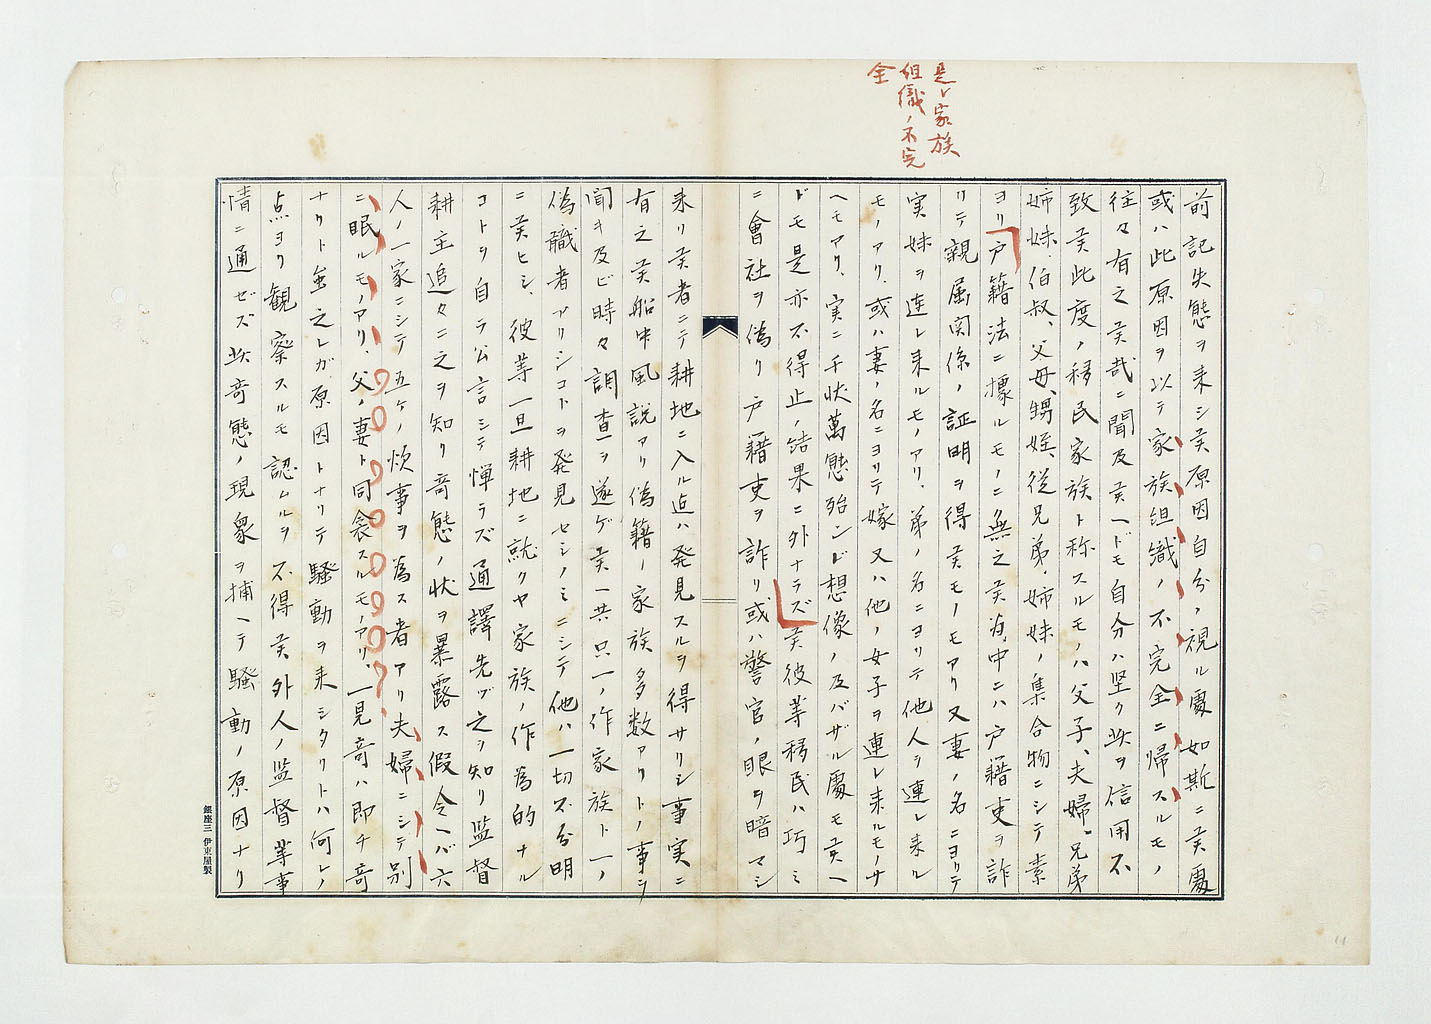 是レ家族
組織ノ不完
全
前記失態ヲ来シ候原因自分ノ視ル処如斯ニ候処
或ハ此原因ヲ以テ家族組織ノ不完全ニ帰スルモノ
往々有之候哉ニ聞及候ヘドモ自分ハ堅ク此ヲ信用不
致候此度ノ移民家族ト称スルモノハ父子、夫婦、兄弟
姉妹、伯叔、父母、甥姪、従兄弟、姉妹ノ集合物ニシテ素
ヨリ戸籍法ニ據ルモノニ無之候為中ニハ戸籍吏ヲ詐
リテ親属関係ノ証明ヲ得候モノモアリ又妻ノ名ニヨリテ
実妹ヲ連レ来ルモノアリ、弟ノ名ニヨリテ他人ヲ連レ来ル
モノアリ、或ハ妻ノ名ニヨリテ嫁又ハ他ノ女子ヲ連レ来ルモノサ
ヘモアリ、実ニ千状萬態殆ンド想像ノ及バザル処モ候ヘ
ドモ是亦不得止ノ結果ニ外ナラズ候彼等移民ハ巧ミ
ニ會社ヲ偽リ戸籍吏ヲ詐リ或ハ警官ノ眼ヲ暗マシ
来リ候者ニテ耕地ニ入ル迄ハ発見スルヲ得サリシ事実ニ
有之候船中風説アリ偽籍ノ家族多数アリトノ事ヲ
聞キ及ビ時々調査ヲ遂ゲ候ヘ共只一ノ作家族ト一ノ
偽職者アリシコトヲ発見セシノミニシテ他ハ一切不分明
ニ候ヒシ、彼等一旦耕地ニ就クヤ家族ノ作為的ナル
コトヲ自ラ公言シテ憚ラズ通譯先ヅ之ヲ知リ監督
耕主追々ニ之ヲ知リ奇態ノ状ヲ暴露ス假令ヘバ六
人ノ一家ニシテ五ケノ炊事ヲ為ス者アリ夫婦ニシテ別
ニ眠ルモノアリ、父ノ妻ト同衾スルモノアリ、一見奇ハ即チ奇
ナリト雖之レガ原因トナリテ騒動ヲ来シタリトハ何レノ
点ヨリ観察スルモ認ムルヲ不得候外人ノ監督等事
情ニ通ゼズ此奇態ノ現象ヲ捕ヘテ騒動ノ原因ナリ
銀座三 伊東屋製